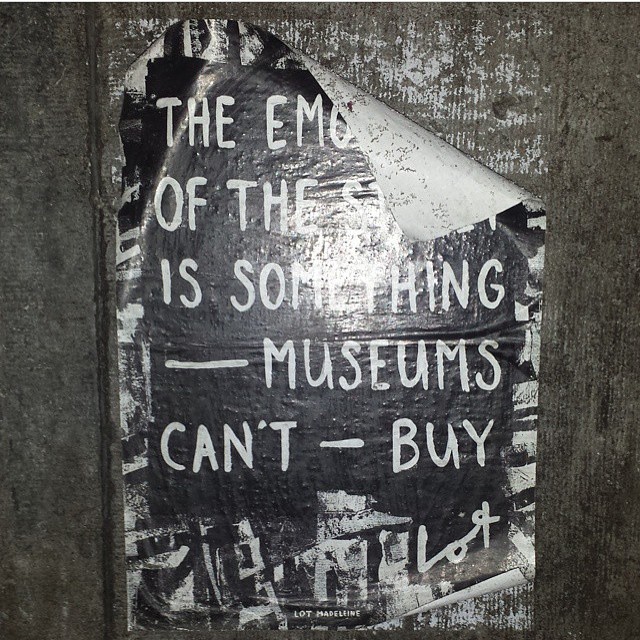 THE
OF THE
IS SOMETHING
— MUSEUMS
CAN'T — BUY
Lot
LOT MADELEINE